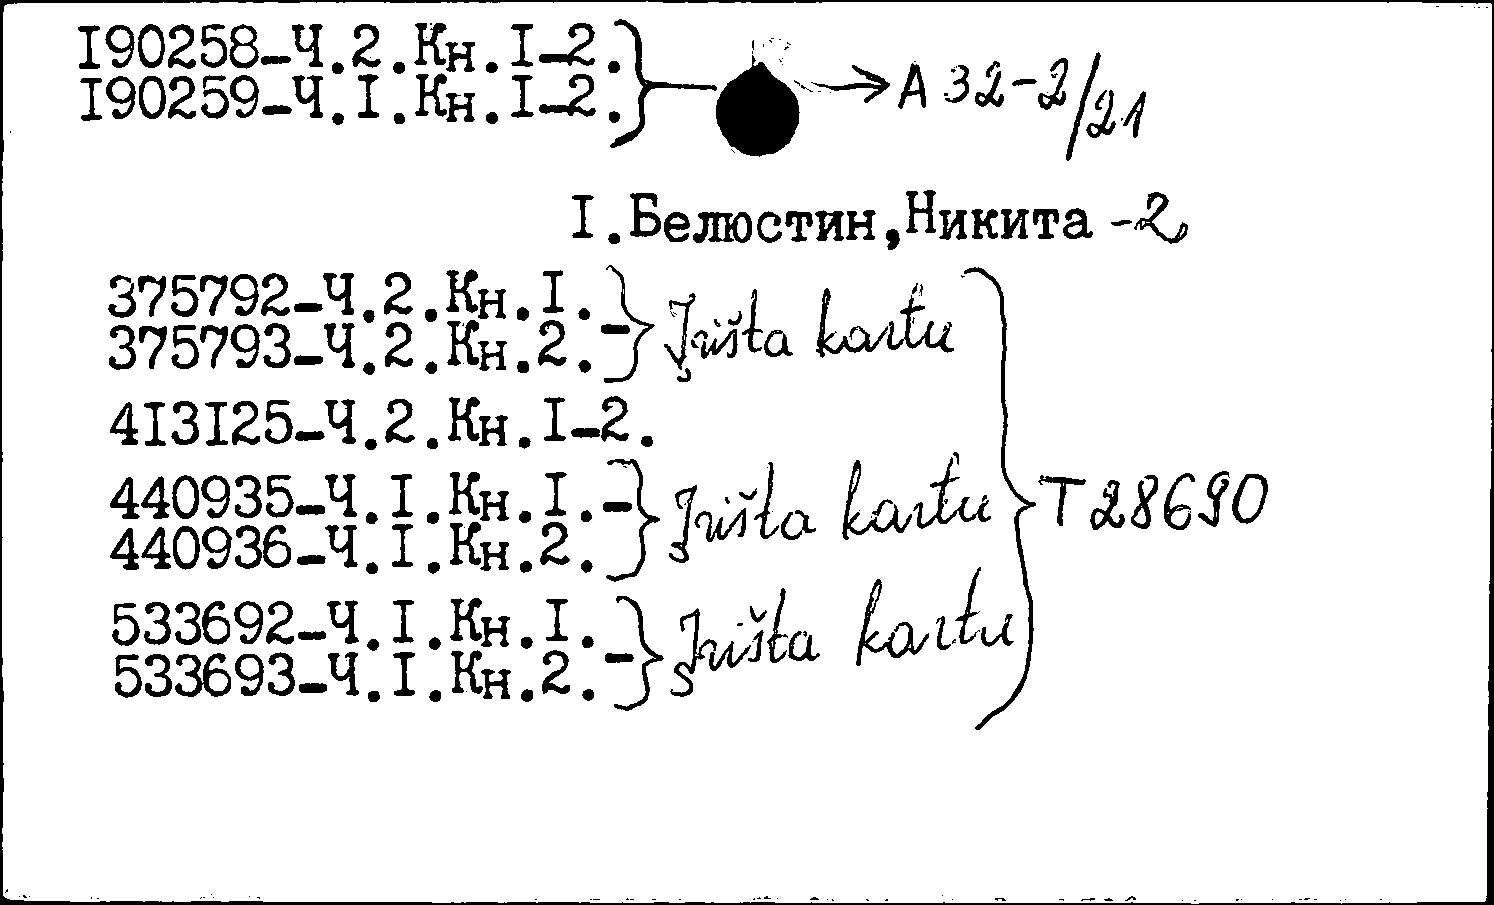 I90258-Ч.2.Кн.I-2.
I90259-Ч.I.Кн.I-2.
A 32-2/21
I.Белюстин,Никита -2
375792-Ч.2.Кн.I.
375793-Ч.2.Кн.2.-
Įrišta kartu
4I3I25-Ч.2.Кн.I-2.
440935-Ч.I.Кн.I.-
440936-Ч.I.Кн.2.
Įrišta kartu
T28690
533692-Ч.I.Кн.I.
533693-Ч.I.Кн.2.-
Įrišta kartu